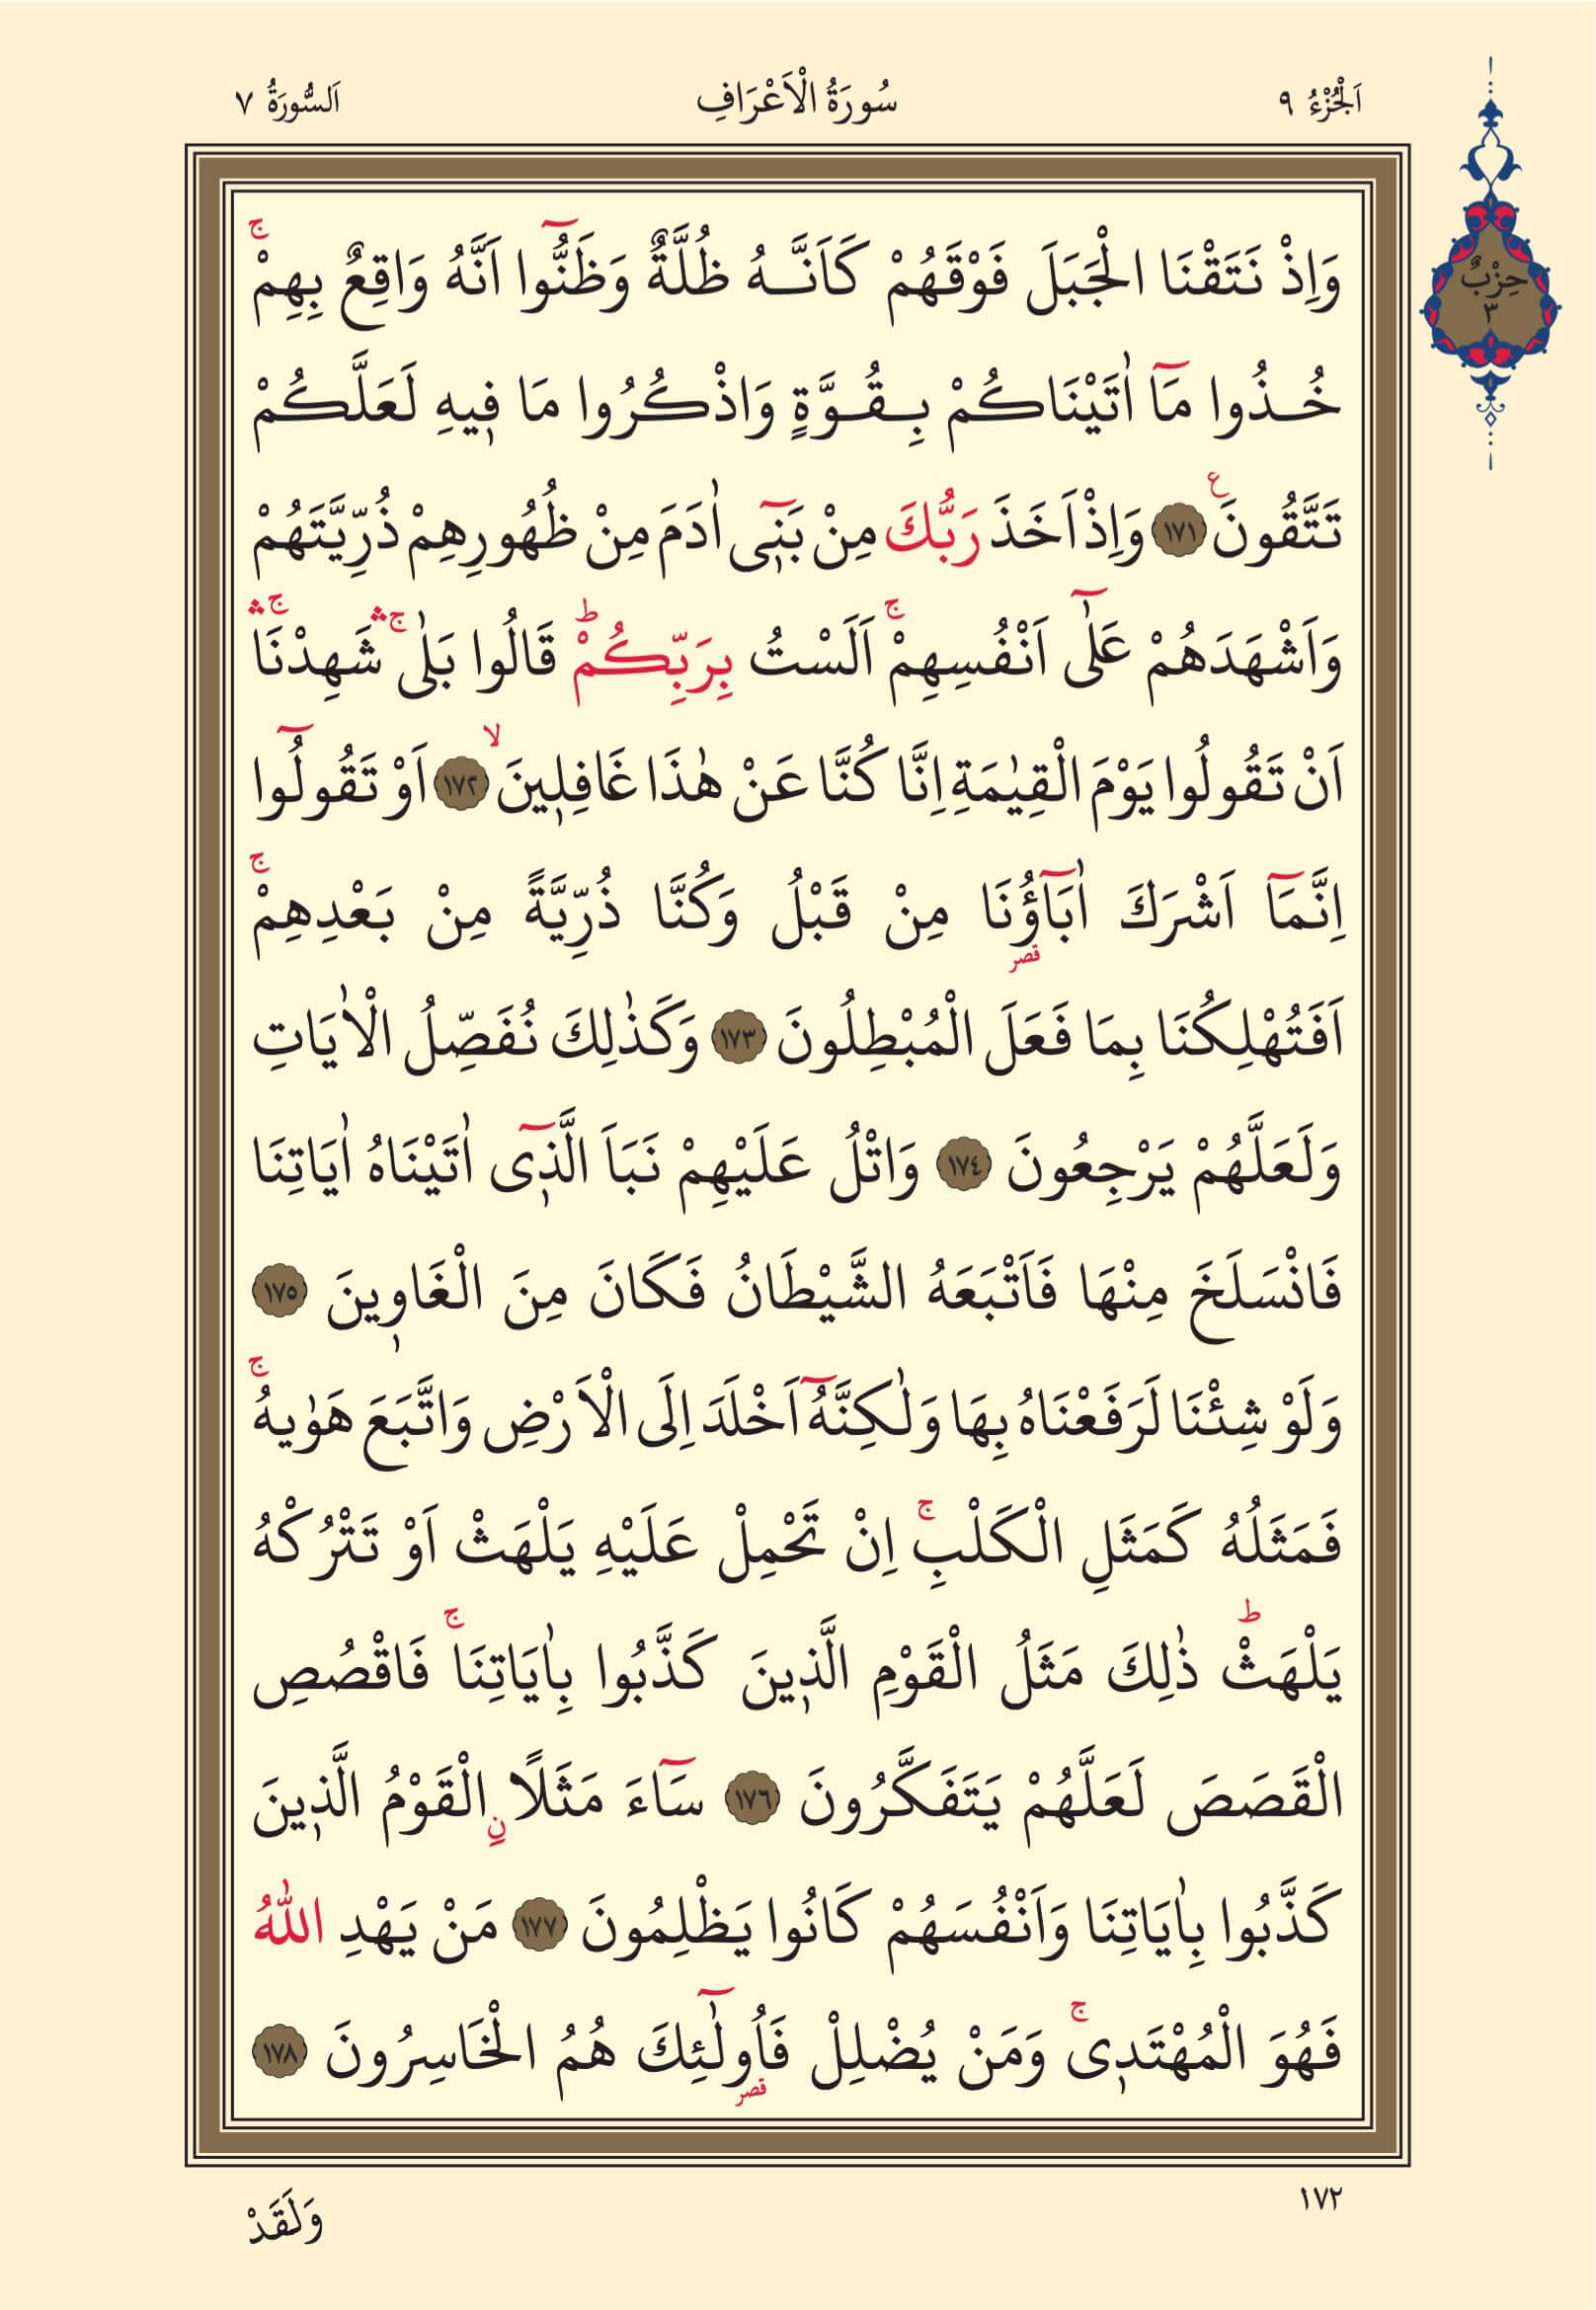 اَلْجُزْءُ ٩
سُورَةُ الْاَعْرَافِ
اَلسُّورَةُ ٧
حِزْبٌ
٣
وَاِذْ نَتَقْنَا الْجَبَلَ فَوْقَهُمْ كَاَنَّهُ ظُلَّةٌ وَظَنُّٓوا اَنَّهُ وَاقِعٌ بِهِمْۚ
خُذُوا مَٓا اٰتَيْنَاكُمْ بِقُوَّةٍ وَاذْكُرُوا مَا ف۪يهِ لَعَلَّكُمْ
تَتَّقُونَ ع ١٧١ وَاِذْ اَخَذَ رَبُّكَ مِنْ بَن۪ٓى اٰدَمَ مِنْ ظُهُورِهِمْ ذُرِّيَّتَهُمْ
وَاَشْهَدَهُمْ عَلٰٓى اَنْفُسِهِمْۚ اَلَسْتُ بِرَبِّكُمْۜ قَالُوا بَلٰىۚۛ شَهِدْنَاۚۛ
اَنْ تَقُولُوا يَوْمَ الْقِيٰمَةِ اِنَّا كُنَّا عَنْ هٰذَا غَافِل۪ينَۙ ١٧٢ اَوْ تَقُولُٓوا
اِنَّمَٓا اَشْرَكَ اٰبَٓاؤُ۬نَا مِنْ قَبْلُ وَكُنَّا ذُرِّيَّةً مِنْ بَعْدِهِمْۚ
قصر
اَفَتُهْلِكُنَا بِمَا فَعَلَ الْمُبْطِلُونَ ١٧٣ وَكَذٰلِكَ نُفَصِّلُ الْاٰيَاتِ
وَلَعَلَّهُمْ يَرْجِعُونَ ١٧٤ وَاتْلُ عَلَيْهِمْ نَبَاَ الَّذ۪ٓى اٰتَيْنَاهُ اٰيَاتِنَا
فَانْسَلَخَ مِنْهَا فَاَتْبَعَهُ الشَّيْطَانُ فَكَانَ مِنَ الْغَاو۪ينَ ١٧٥
وَلَوْ شِئْنَا لَرَفَعْنَاهُ بِهَا وَلٰكِنَّهُٓ اَخْلَدَ اِلَى الْاَرْضِ وَاتَّبَعَ هَوٰيهُۚ
فَمَثَلُهُ كَمَثَلِ الْكَلْبِۚ اِنْ تَحْمِلْ عَلَيْهِ يَلْهَثْ اَوْ تَتْرُكْهُ
يَلْهَثْۜ ذٰلِكَ مَثَلُ الْقَوْمِ الَّذ۪ينَ كَذَّبُوا بِاٰيَاتِنَاۚ فَاقْصُصِ
الْقَصَصَ لَعَلَّهُمْ يَتَفَكَّرُونَ ١٧٦ سَٓاءَ مَثَلًا نِ الْقَوْمُ الَّذ۪ينَ
كَذَّبُوا بِاٰيَاتِنَا وَاَنْفُسَهُمْ كَانُوا يَظْلِمُونَ ١٧٧ مَنْ يَهْدِ اللّٰهُ
فَهُوَ الْمُهْتَد۪ىۚ وَمَنْ يُضْلِلْ فَاُو۬لٰٓئِكَ هُمُ الْخَاسِرُونَ ١٧٨
قصر
١٧٢
وَلَقَدْ